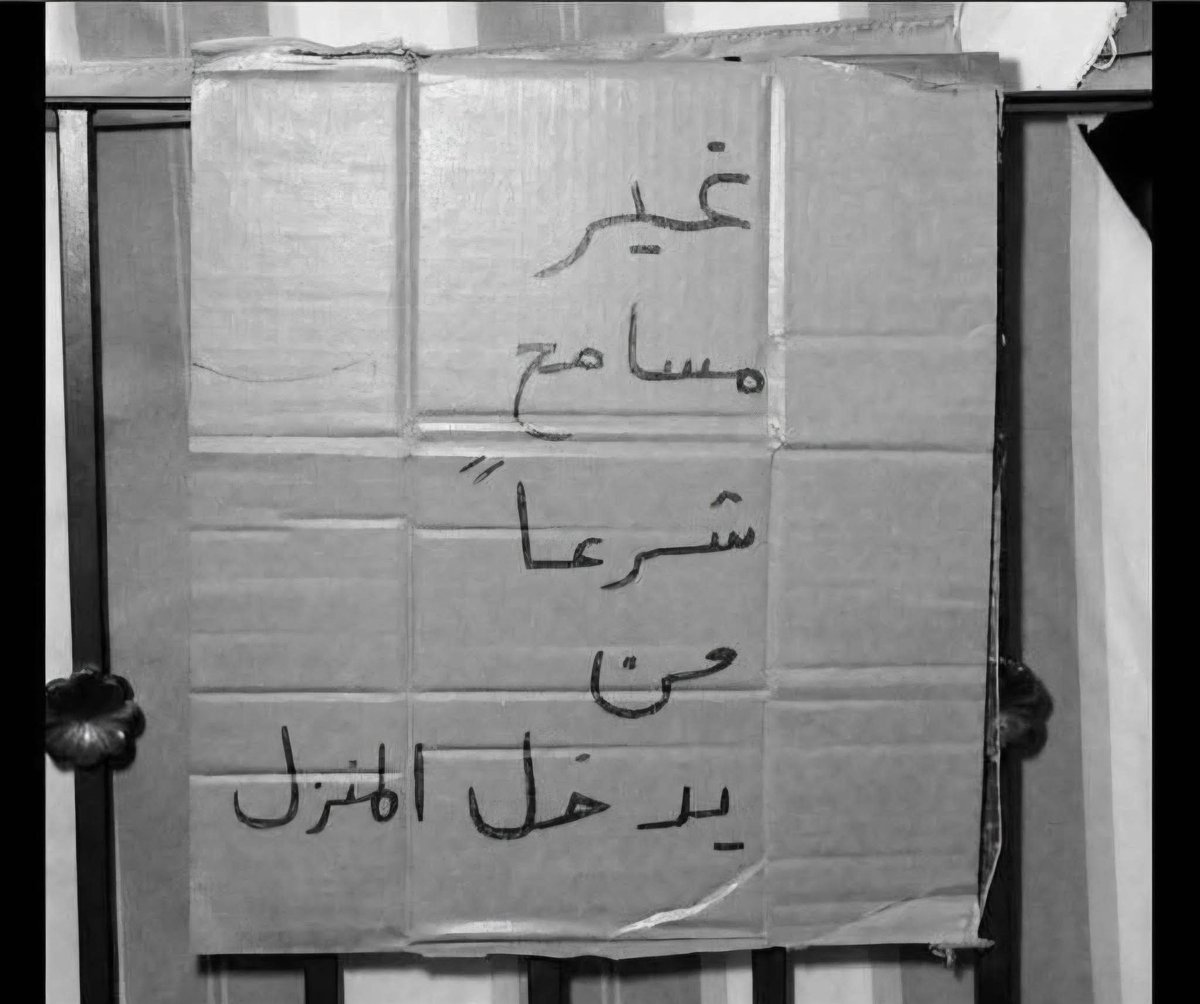 غير
مسامح
شرعاً
من
يدخل المنزل